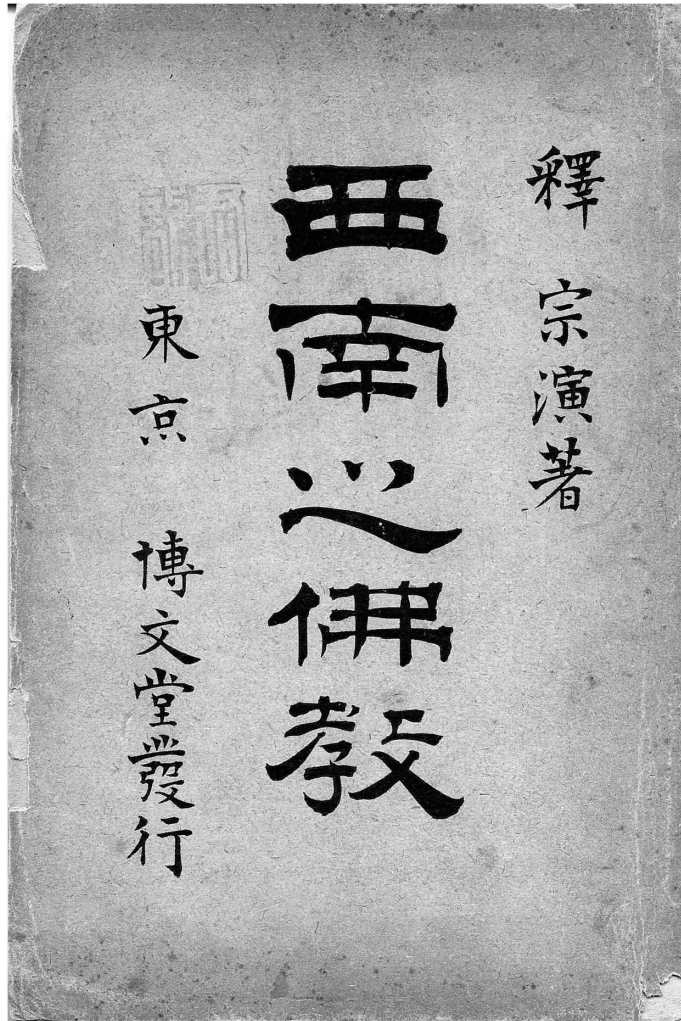 釋 宗演著
西南之佛教
東京 博文堂發行